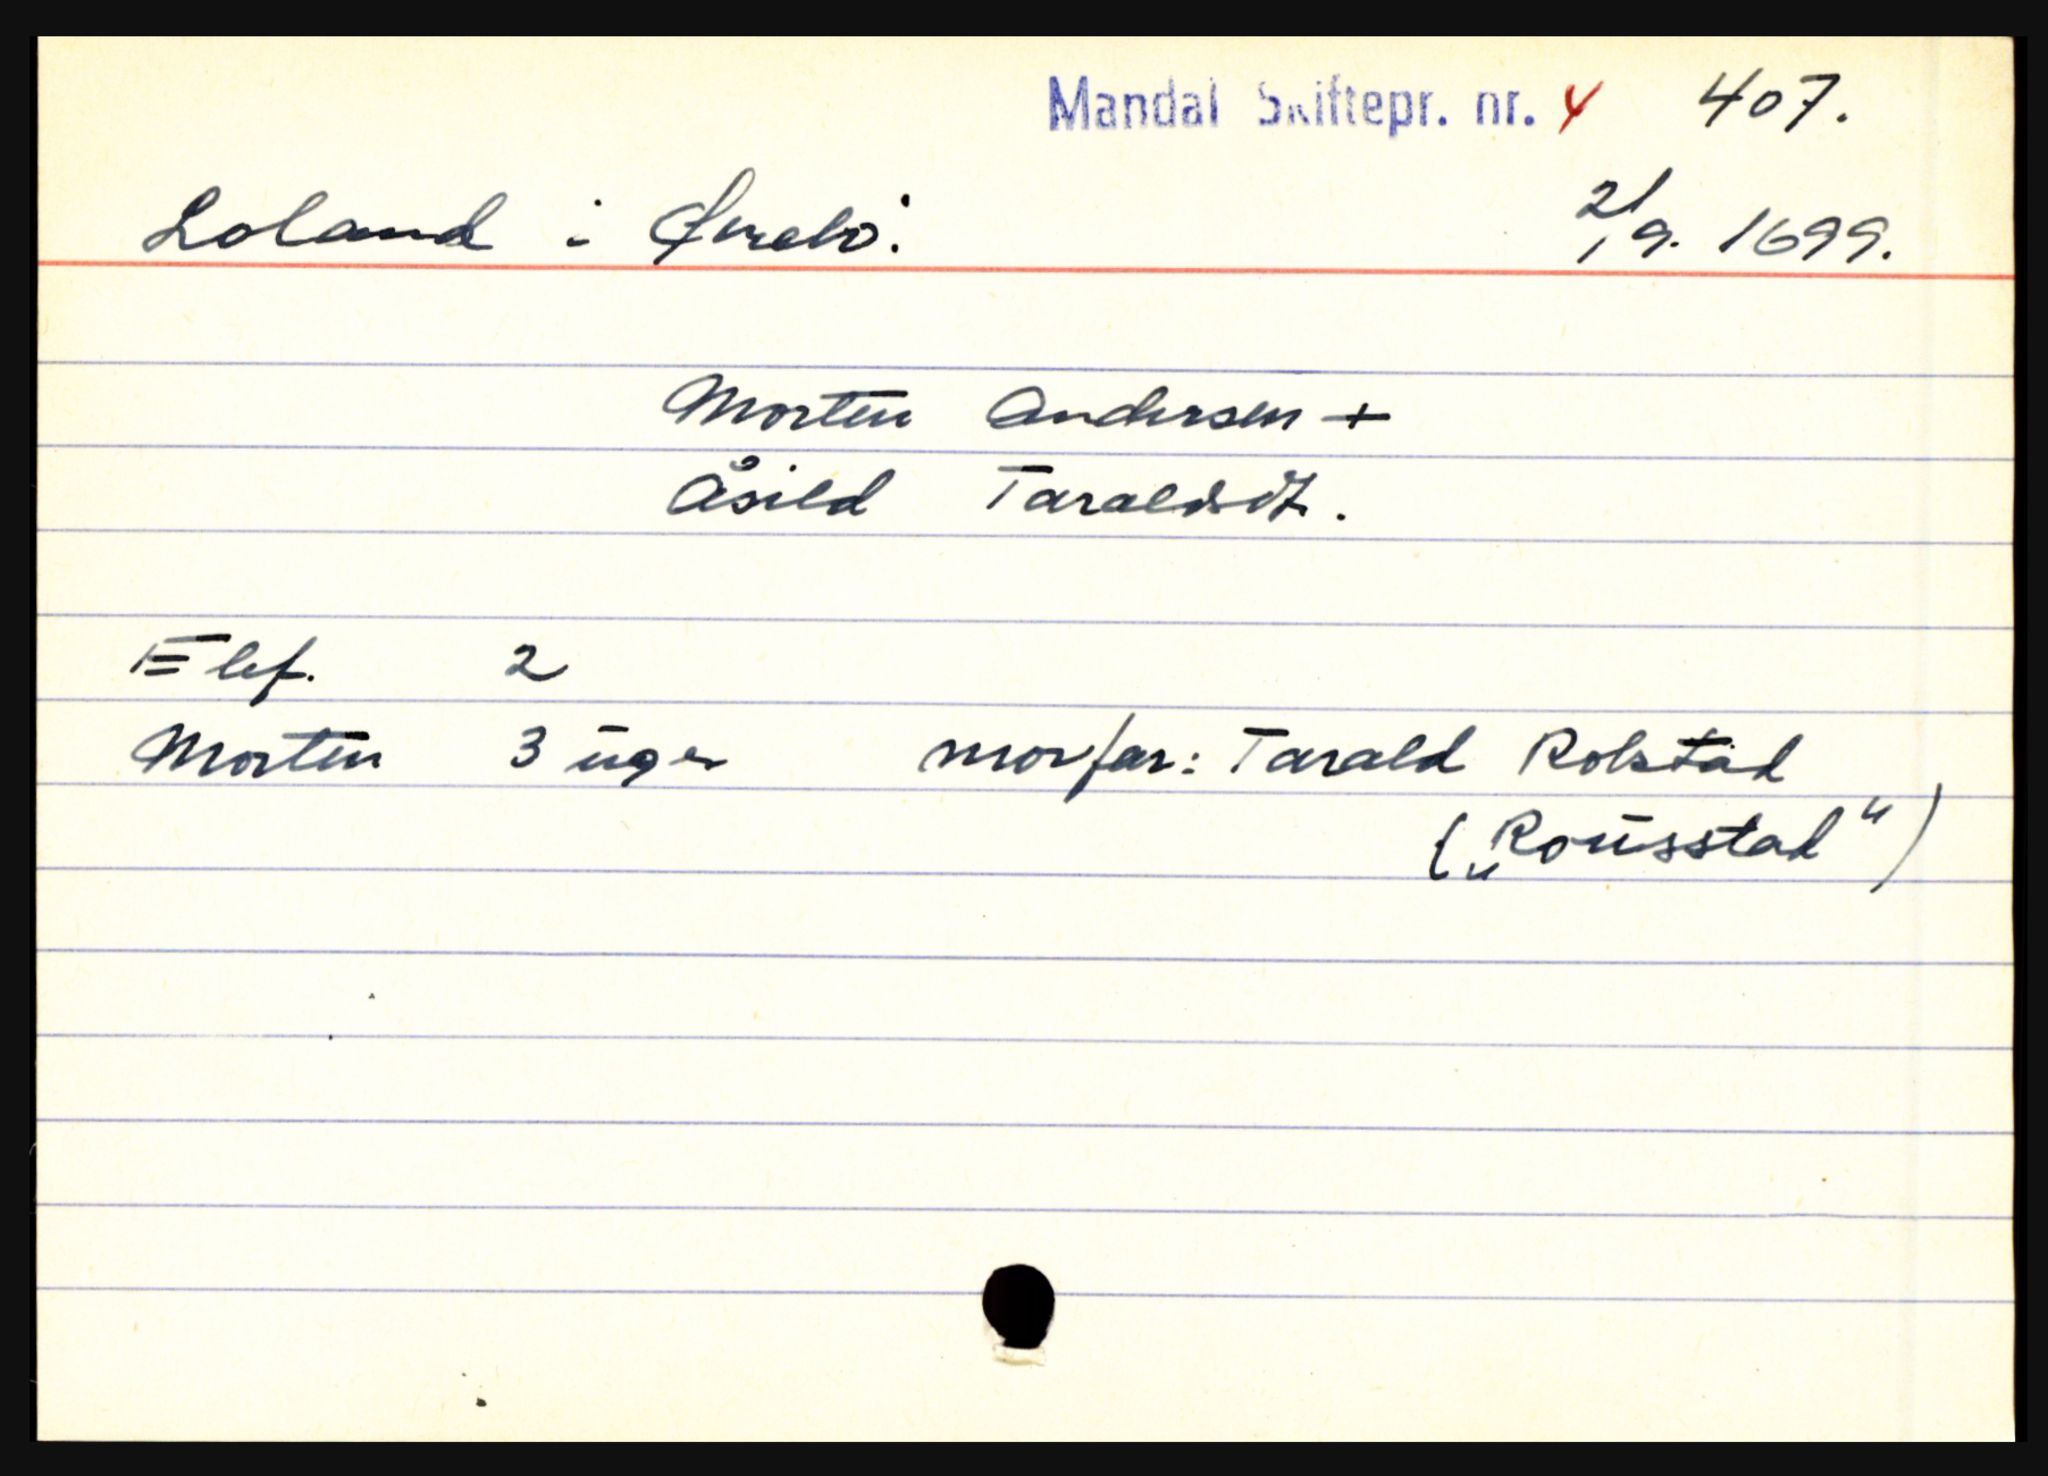 Mandal Skiftepr. nr. 4 407.
Loland i Øvrebö. 21/9. 1699.
Morten Andersen +
Åsild Taraldsdt.
Elef. 2
Morten 3 uger morfar: Tarald Rolstad
(„Rousstad“)